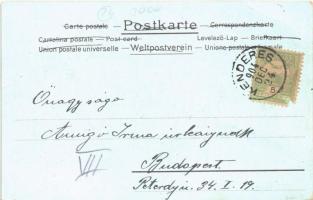 Carte postale — Postkarte — Correspondenzkarte
Cartolina postale — Post card — Levelező-Lap — Briefkaart
Union postale universelle — Weltpostverein — Unione postale
KENDERES
904
DEC
Önagysága
Irma
VII
Budapest.
34. I. 19.